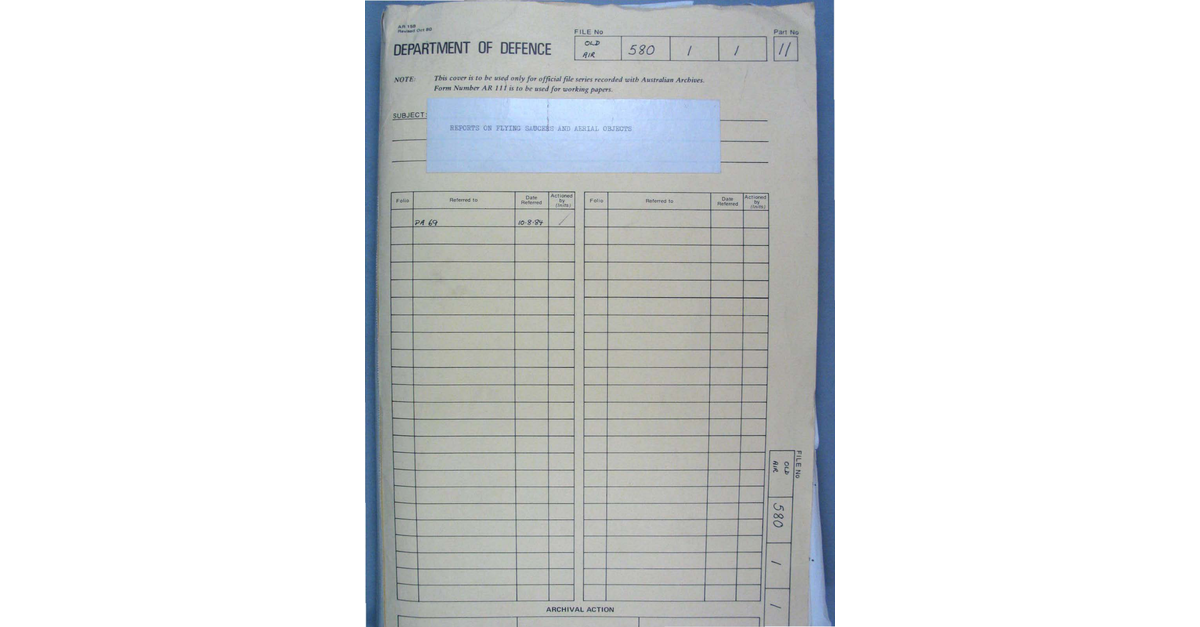 AR 199
Revised Oct 80
DEPARTMENT OF DEFENCE
FILE No
OLD AIR 580 1 1
Part No
11
NOTE: This cover is to be used only for official file series recorded with Australian Archives.
Form Number AR 111 is to be used for working papers.
SUBJECT:
REPORTS ON FLYING SAUCERS AND AERIAL OBJECTS
Folio Referred to Date Referred Actioned by (Inits) Folio Referred to Date Referred Actioned by (Inits)
PA 69 10-8-84
FILE No
OLD AIR 580 1 1
ARCHIVAL ACTION